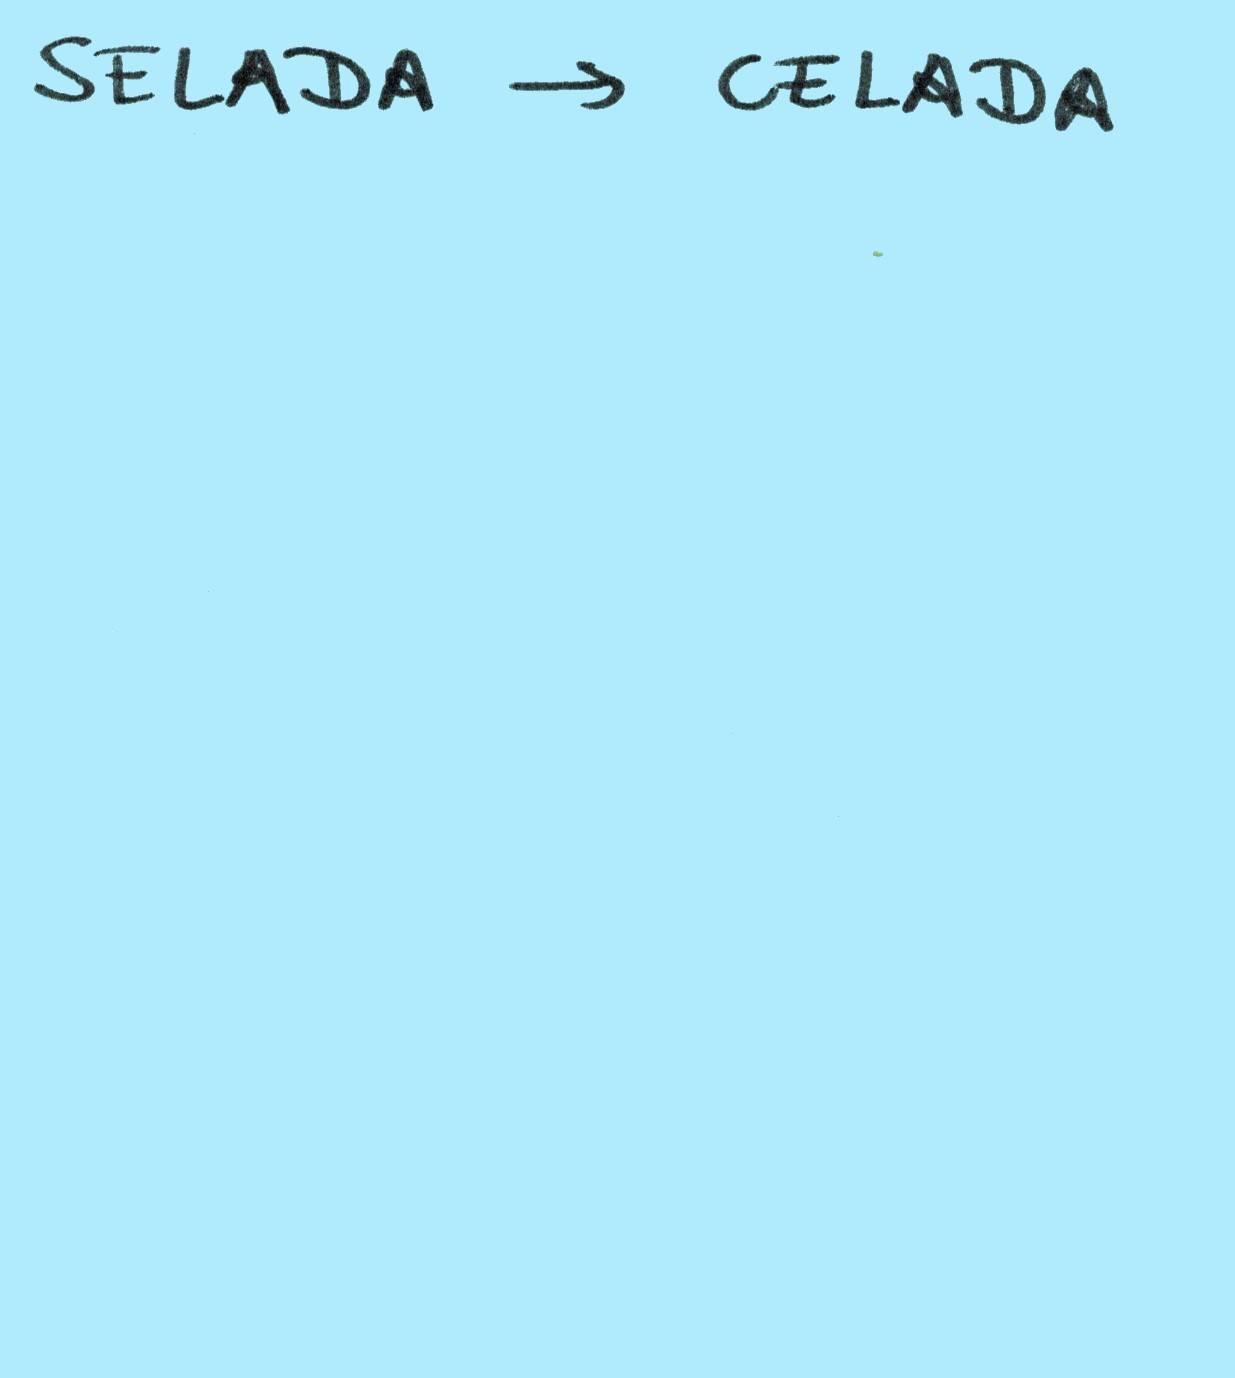 SELADA → CELADA